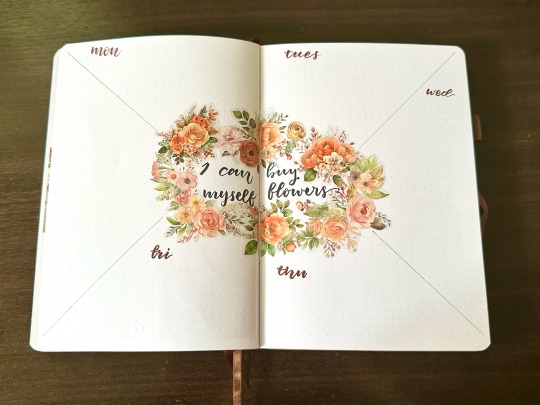 mon
tues
wed
I can buy
myself flowers
fri
thu